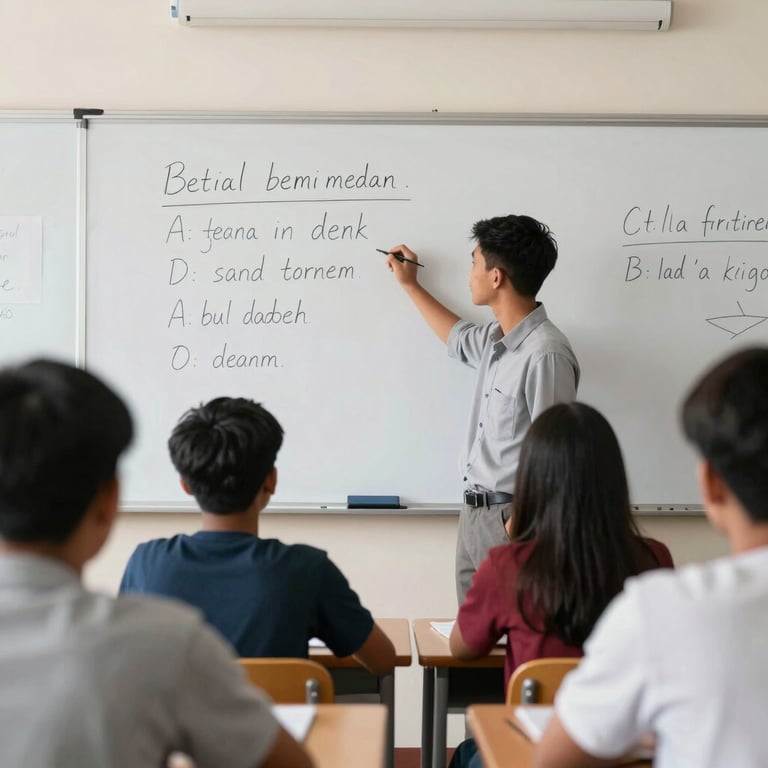 Betial bemimedan.
A: jeana in denk
D: sand tornem.
A: bul dadoeh
O: deanm.
Ct.lla firitirer
B: lad'a kiigo